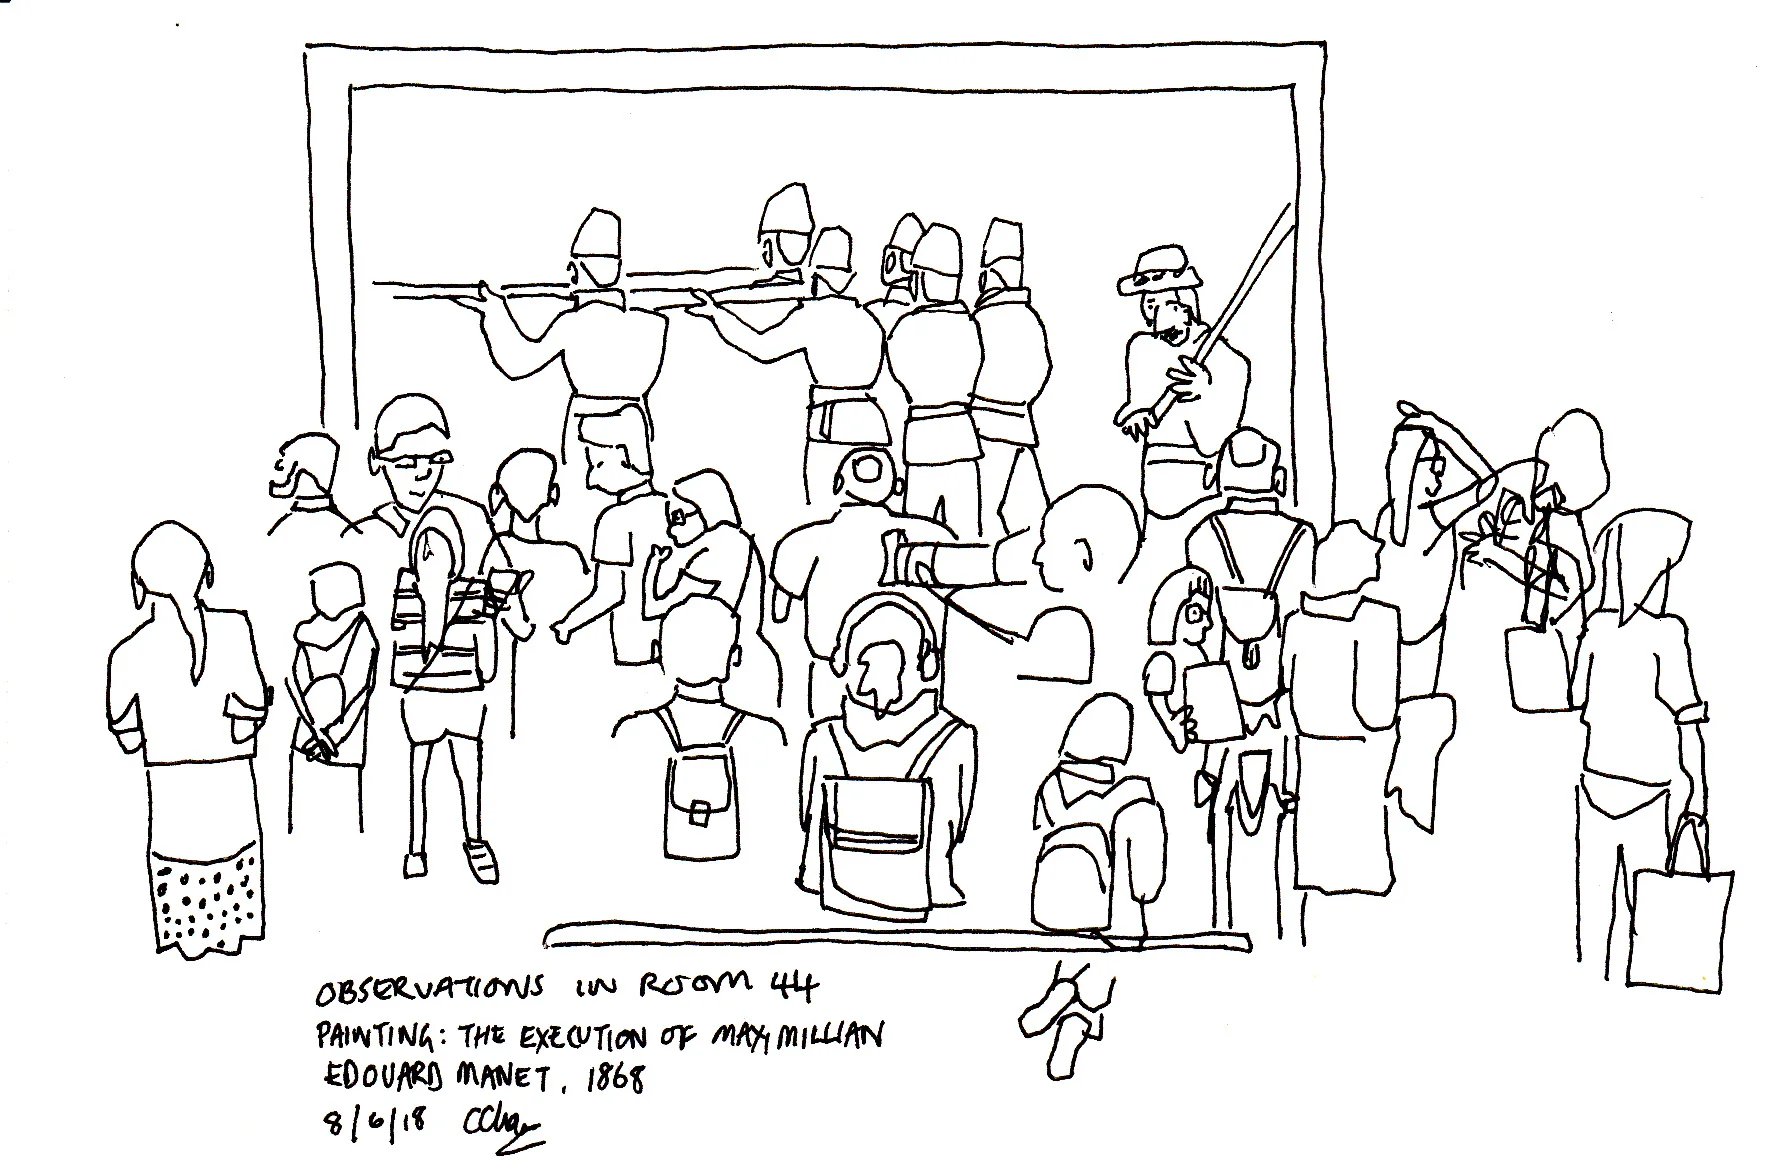 OBSERVATIONS IN ROOM 44
PAINTING: THE EXECUTION OF MAXIMILLIAN
EDOUARD MANET, 1868
8/6/18